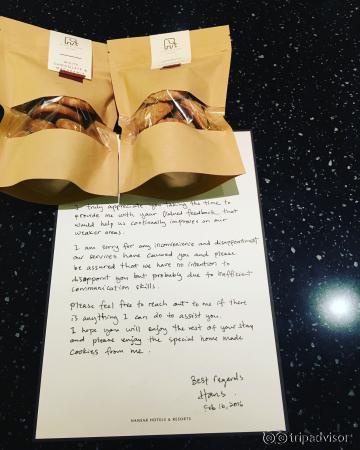 I truly appreciate you taking the time to
provide me with your valued feedback, that
would help us continually improve on our
weaker areas.
I am sorry for any inconvenience and disappointment
our services have caused you and please
be assured that we have no intention to
disappoint you but probably due to inefficient
communication skills.
Please feel free to reach out to me if there
is anything I can do to assist you.
I hope you will enjoy the rest of your stay
and please enjoy the special home made
cookies from me.
Best regards
Hans
Feb 16, 2016
HANSAR HOTELS & RESORTS
tripadvisor